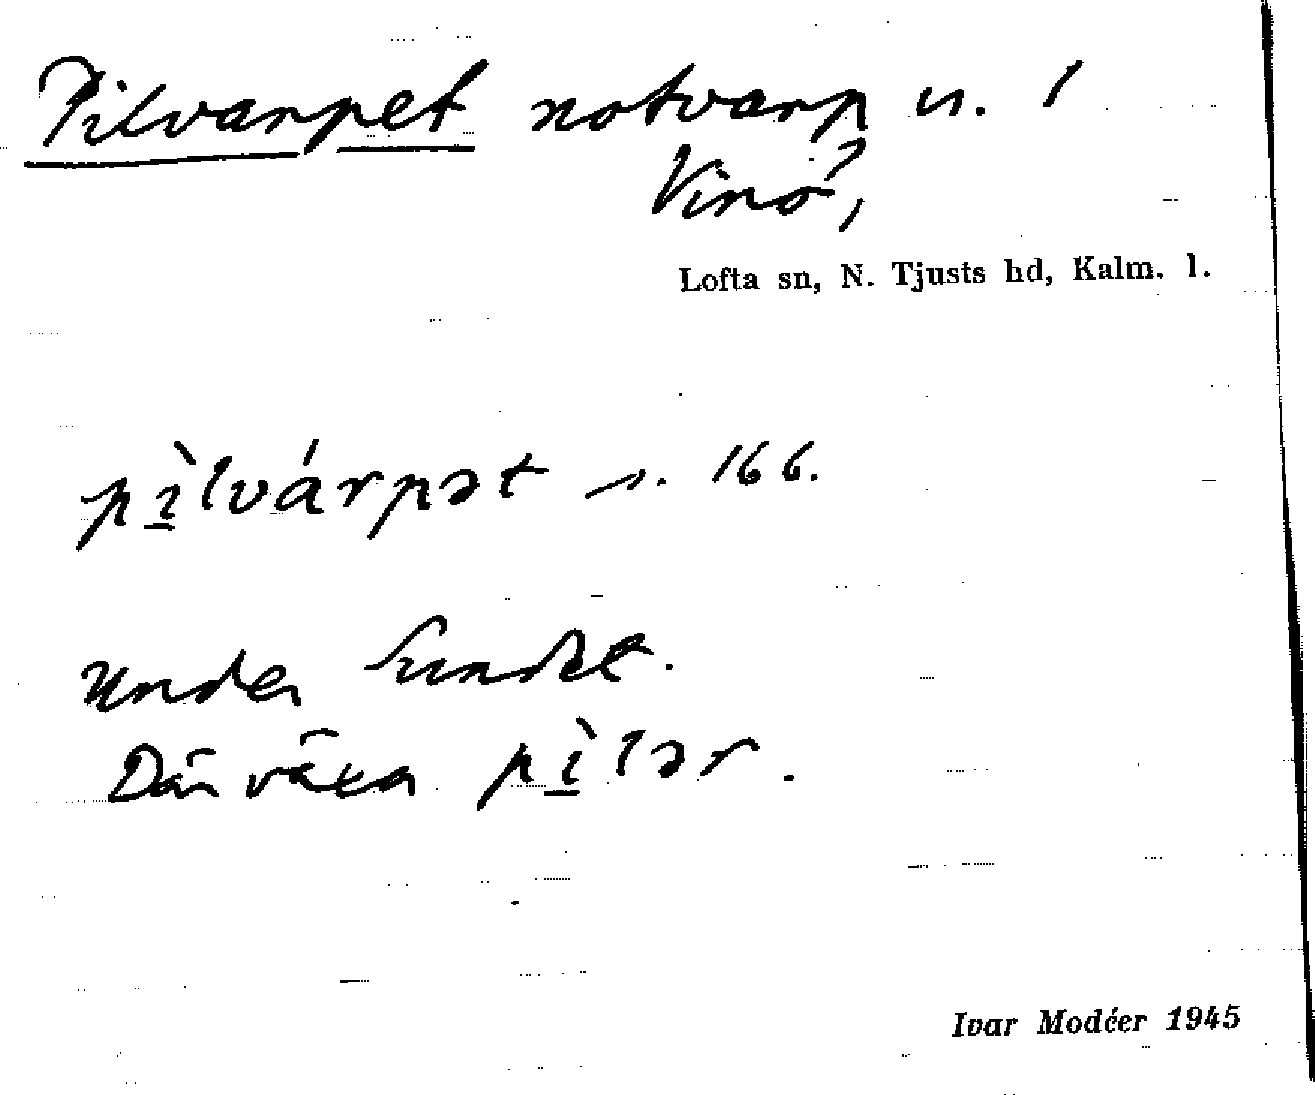 Pilvarpet notvarp u. 1
Vinö,
Lofta sn, N. Tjusts hd, Kalm. l.
pìlvárpət s. 166.
under Sundet.
Där växa pìlər.
Ivar Modéer 1945